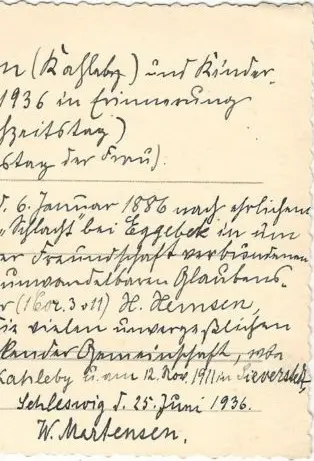 n (Kahleby) und Kinder.
1936 in Erinnerung
hzeitstag)
stag der Frau).
d. 6. Januar 1886 nach ehrlichem
„Schlacht" bei Eggebek in um
er Freundschaft verbundenen
unwandelbaren Glaubens-
r (1 Cor. 3 v 11) H. Hemsen,
ie vielen unvergeßlichen
kender Gemeinschaft, wo
Kahleby u. am 12. Nov. 1911 in Sieverstedt,
Schleswig d. 25. Juni 1936.
W. Martensen.